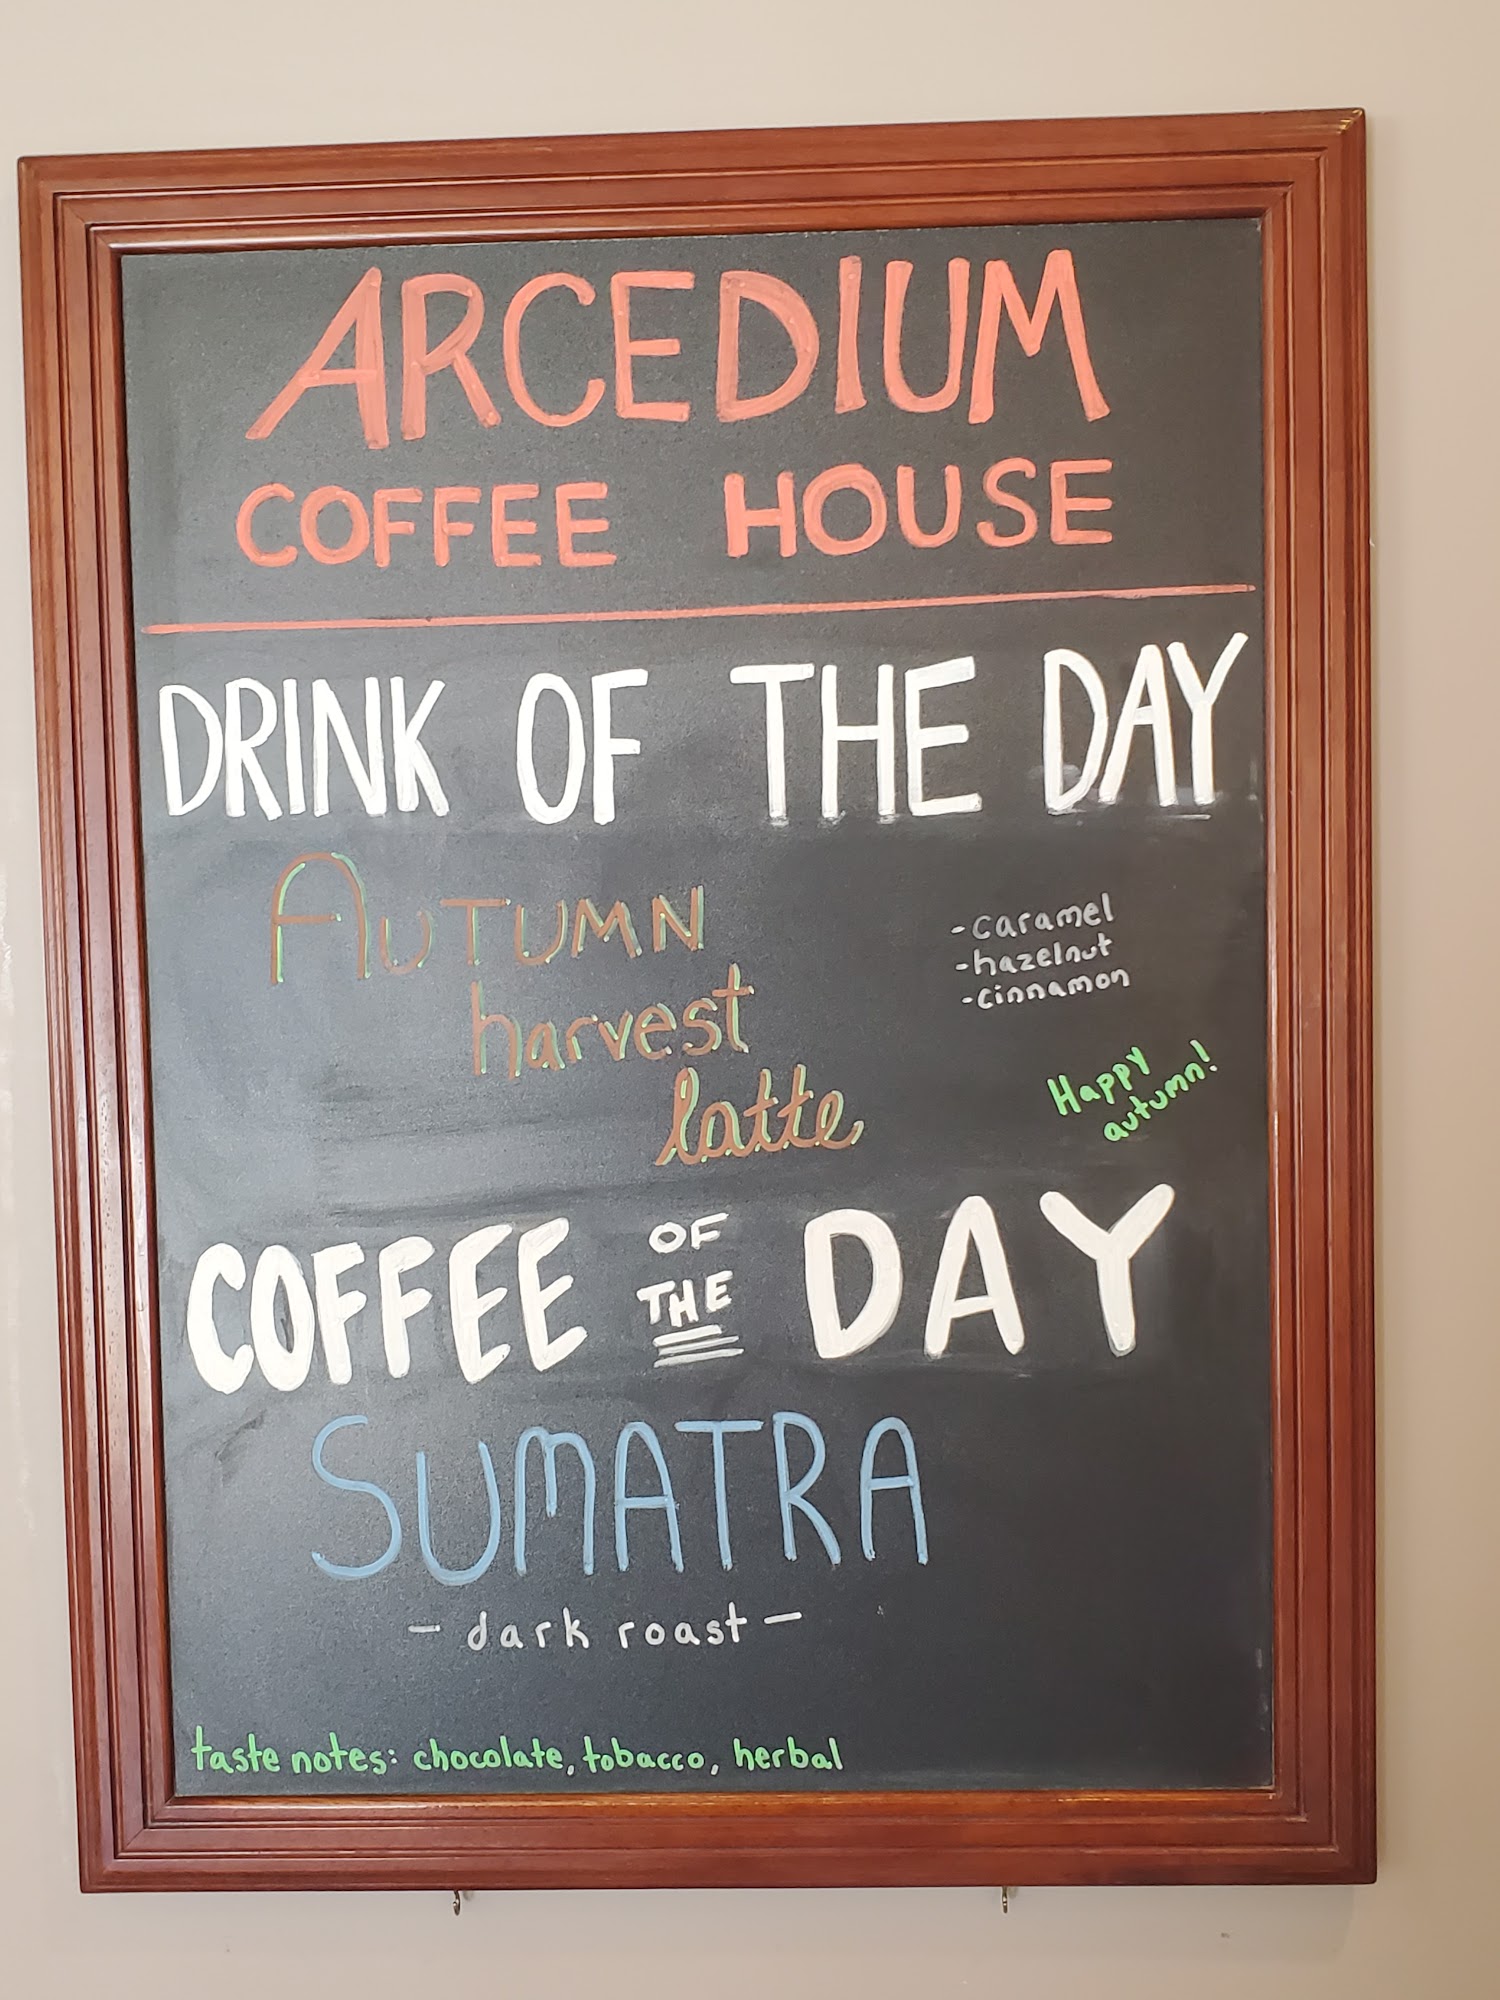 ARCEDIUM
COFFEE HOUSE
DRINK OF THE DAY
AUTUMN
harvest
latte
-caramel
-hazelnut
-cinnamon
Happy
autumn!
COFFEE OF THE DAY
SUMATRA
- dark roast -
taste notes: chocolate, tobacco, herbal